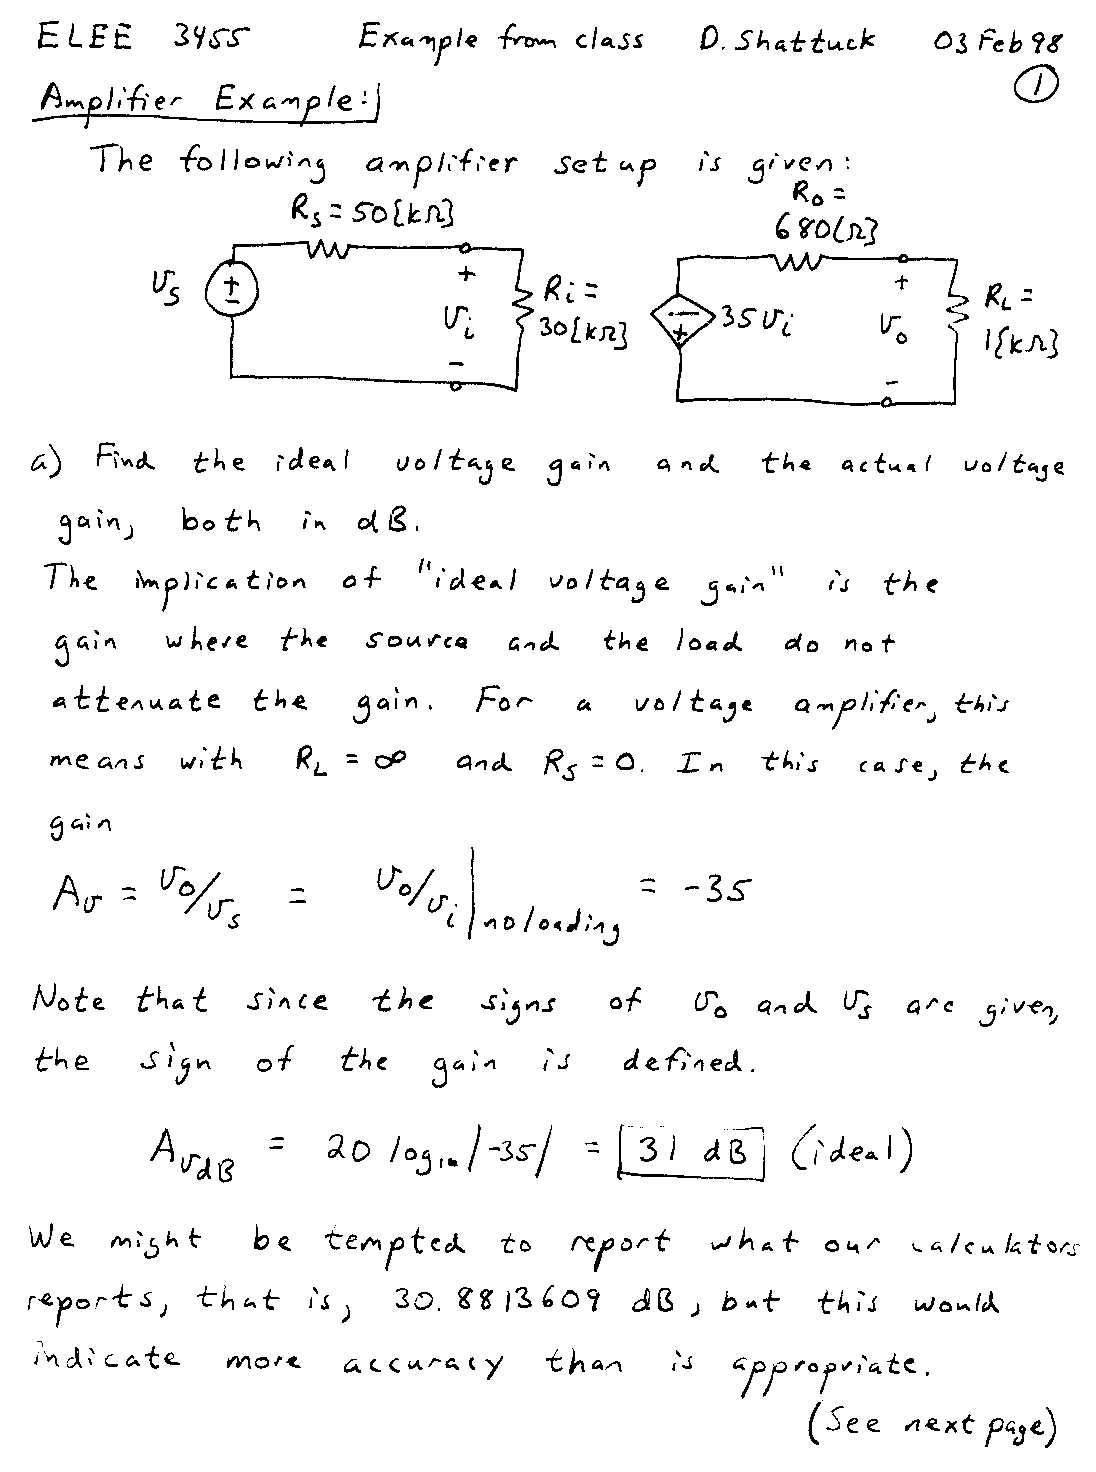 ELEE 3455 Example from class D. Shattuck 03 Feb 98
1
Amplifier Example:
The following amplifier setup is given:
R_S = 50[kΩ]
R_o = 680[Ω]
v_s
+
-
+
v_i
-
R_i = 30[kΩ]
-
+
35 v_i
+
v_o
-
R_L = 1[kΩ]
a) Find the ideal voltage gain and the actual voltage
gain, both in dB.
The implication of "ideal voltage gain" is the
gain where the source and the load do not
attenuate the gain. For a voltage amplifier, this
means with R_L = ∞ and R_S = 0. In this case, the
gain
A_v = v_o/v_s = v_o/v_i |no loading = -35
Note that since the signs of v_o and v_s are given,
the sign of the gain is defined.
A_vdB = 20 log_10 |-35| = 31 dB (ideal)
We might be tempted to report what our calculators
reports, that is, 30.8813609 dB, but this would
indicate more accuracy than is appropriate.
(See next page)